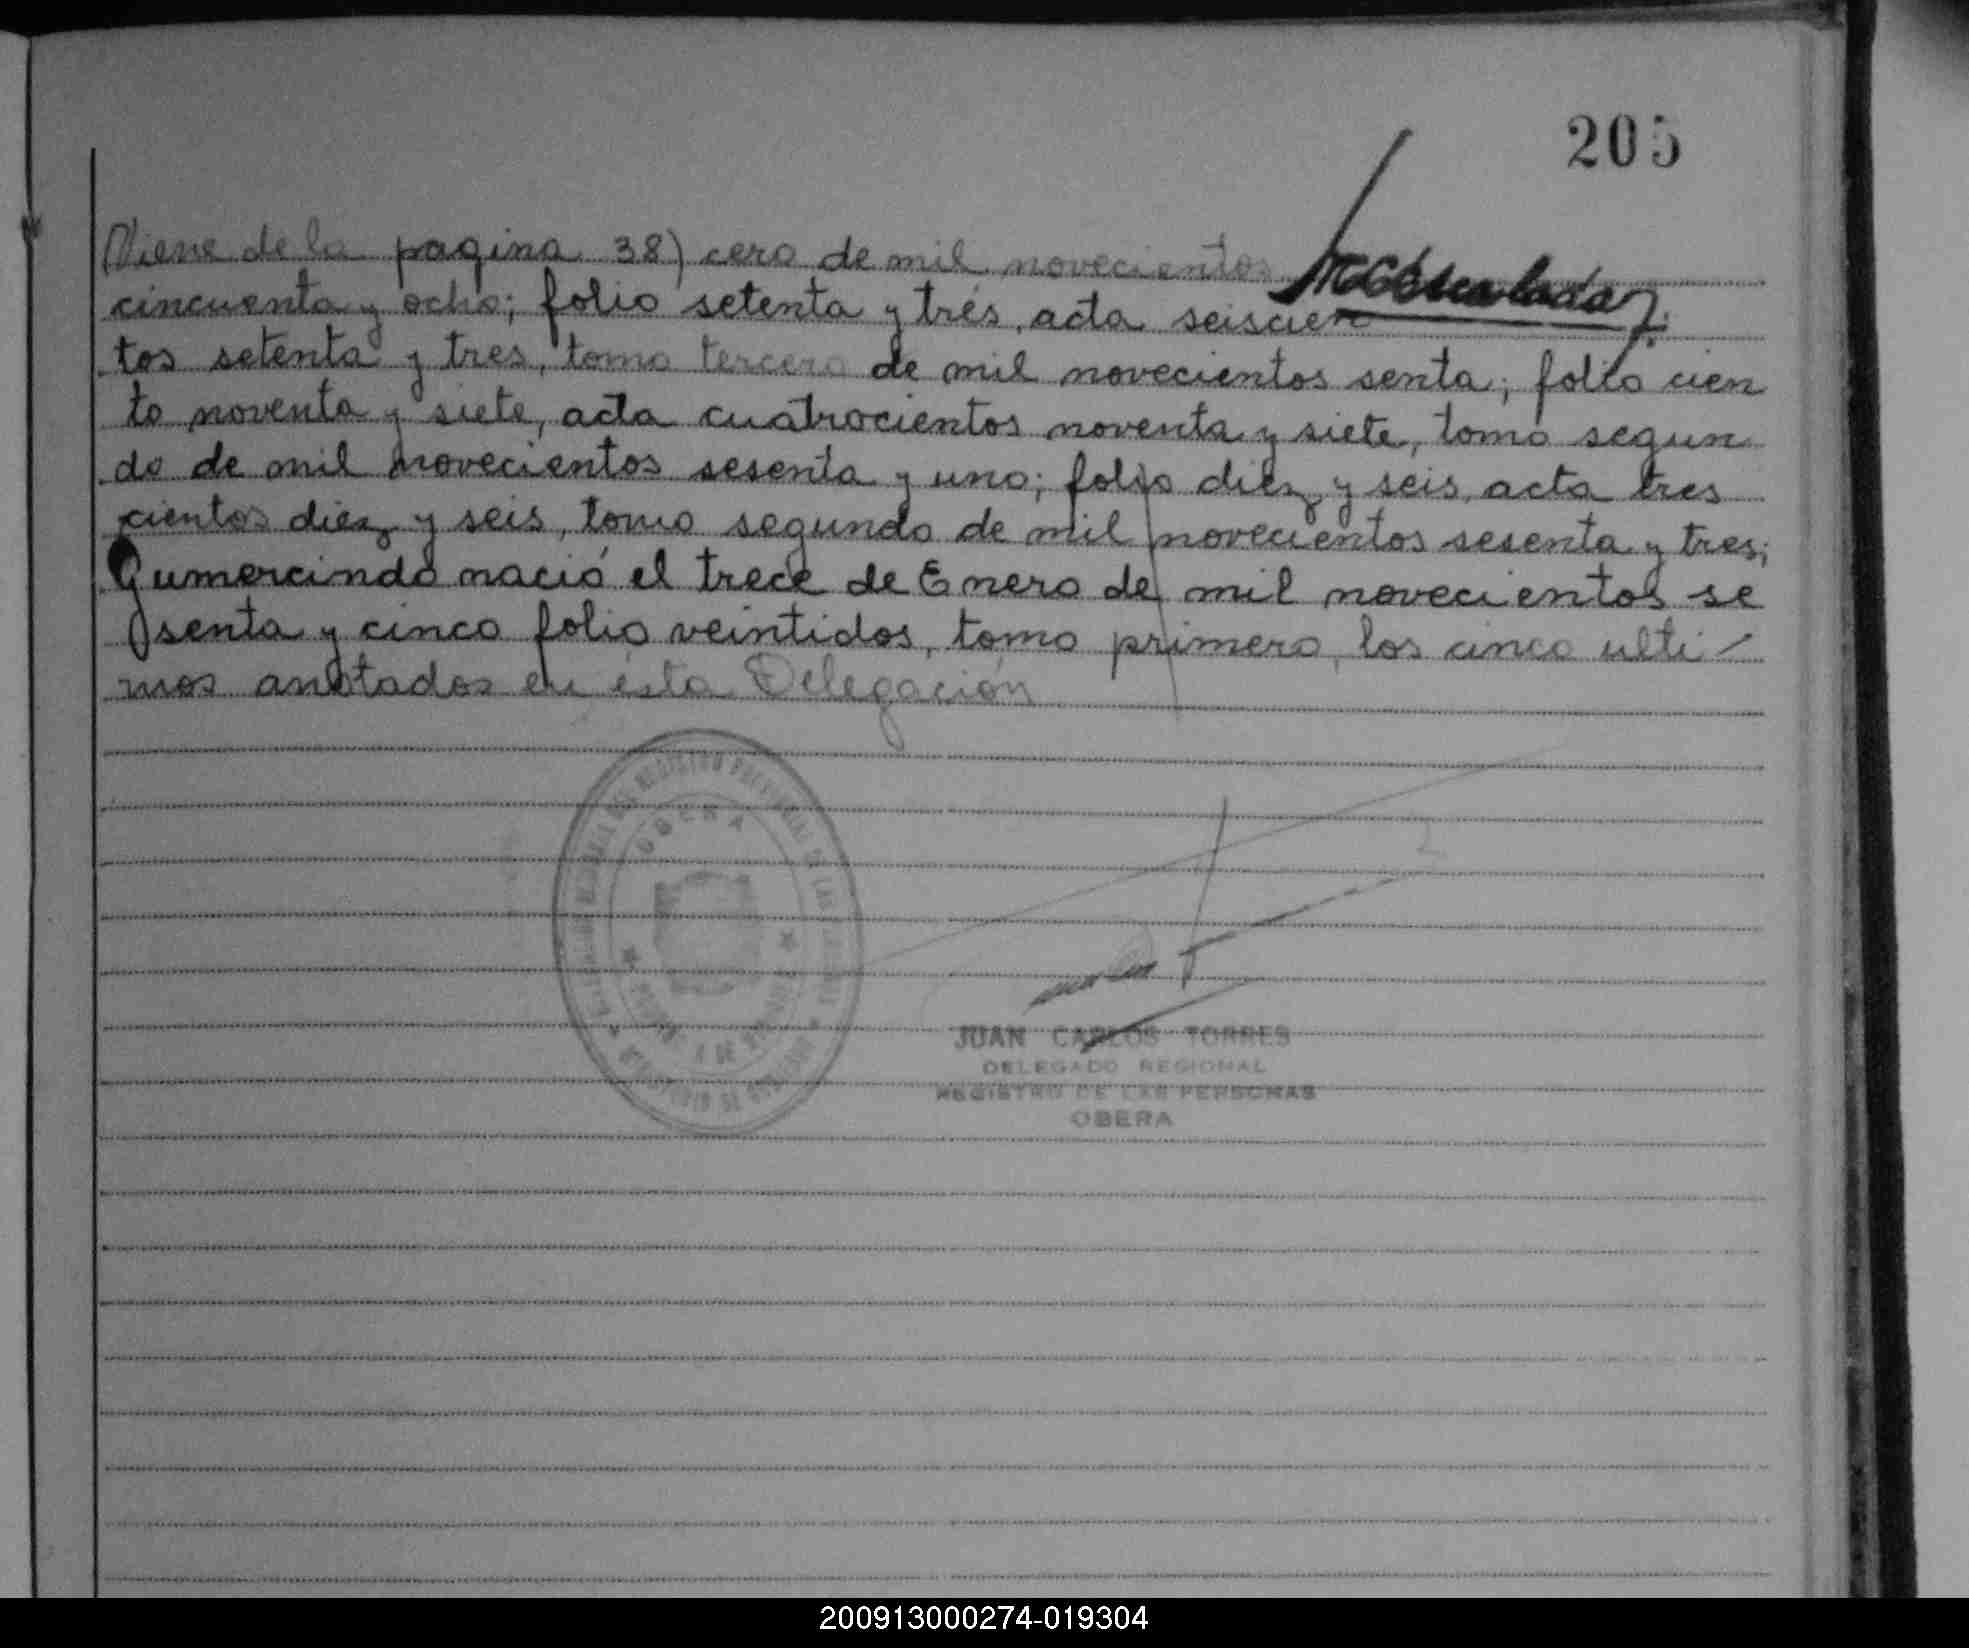 205
(Viene de la pagina 38) cero de mil novecientos
cincuenta y ocho; folio setenta y trés, acta seiscien
tos setenta y tres, tomo tercero de mil novecientos senta; folio cien
to noventa y siete, acta cuatrocientos noventa y siete, tomo segun
do de mil novecientos sesenta y uno; folio diez y seis, acta tres
cientos diez y seis, tomo segundo de mil novecientos sesenta y tres;
Gumercindo nació el trece de Enero de mil novecientos se
senta y cinco folio veintidos, tomo primero, los cinco ulti-
mos anotados en ésta Delegación
OBERA
JUAN CARLOS TORRES
DELEGADO REGIONAL
REGISTRO DE LAS PERSONAS
OBERA
200913000274-019304